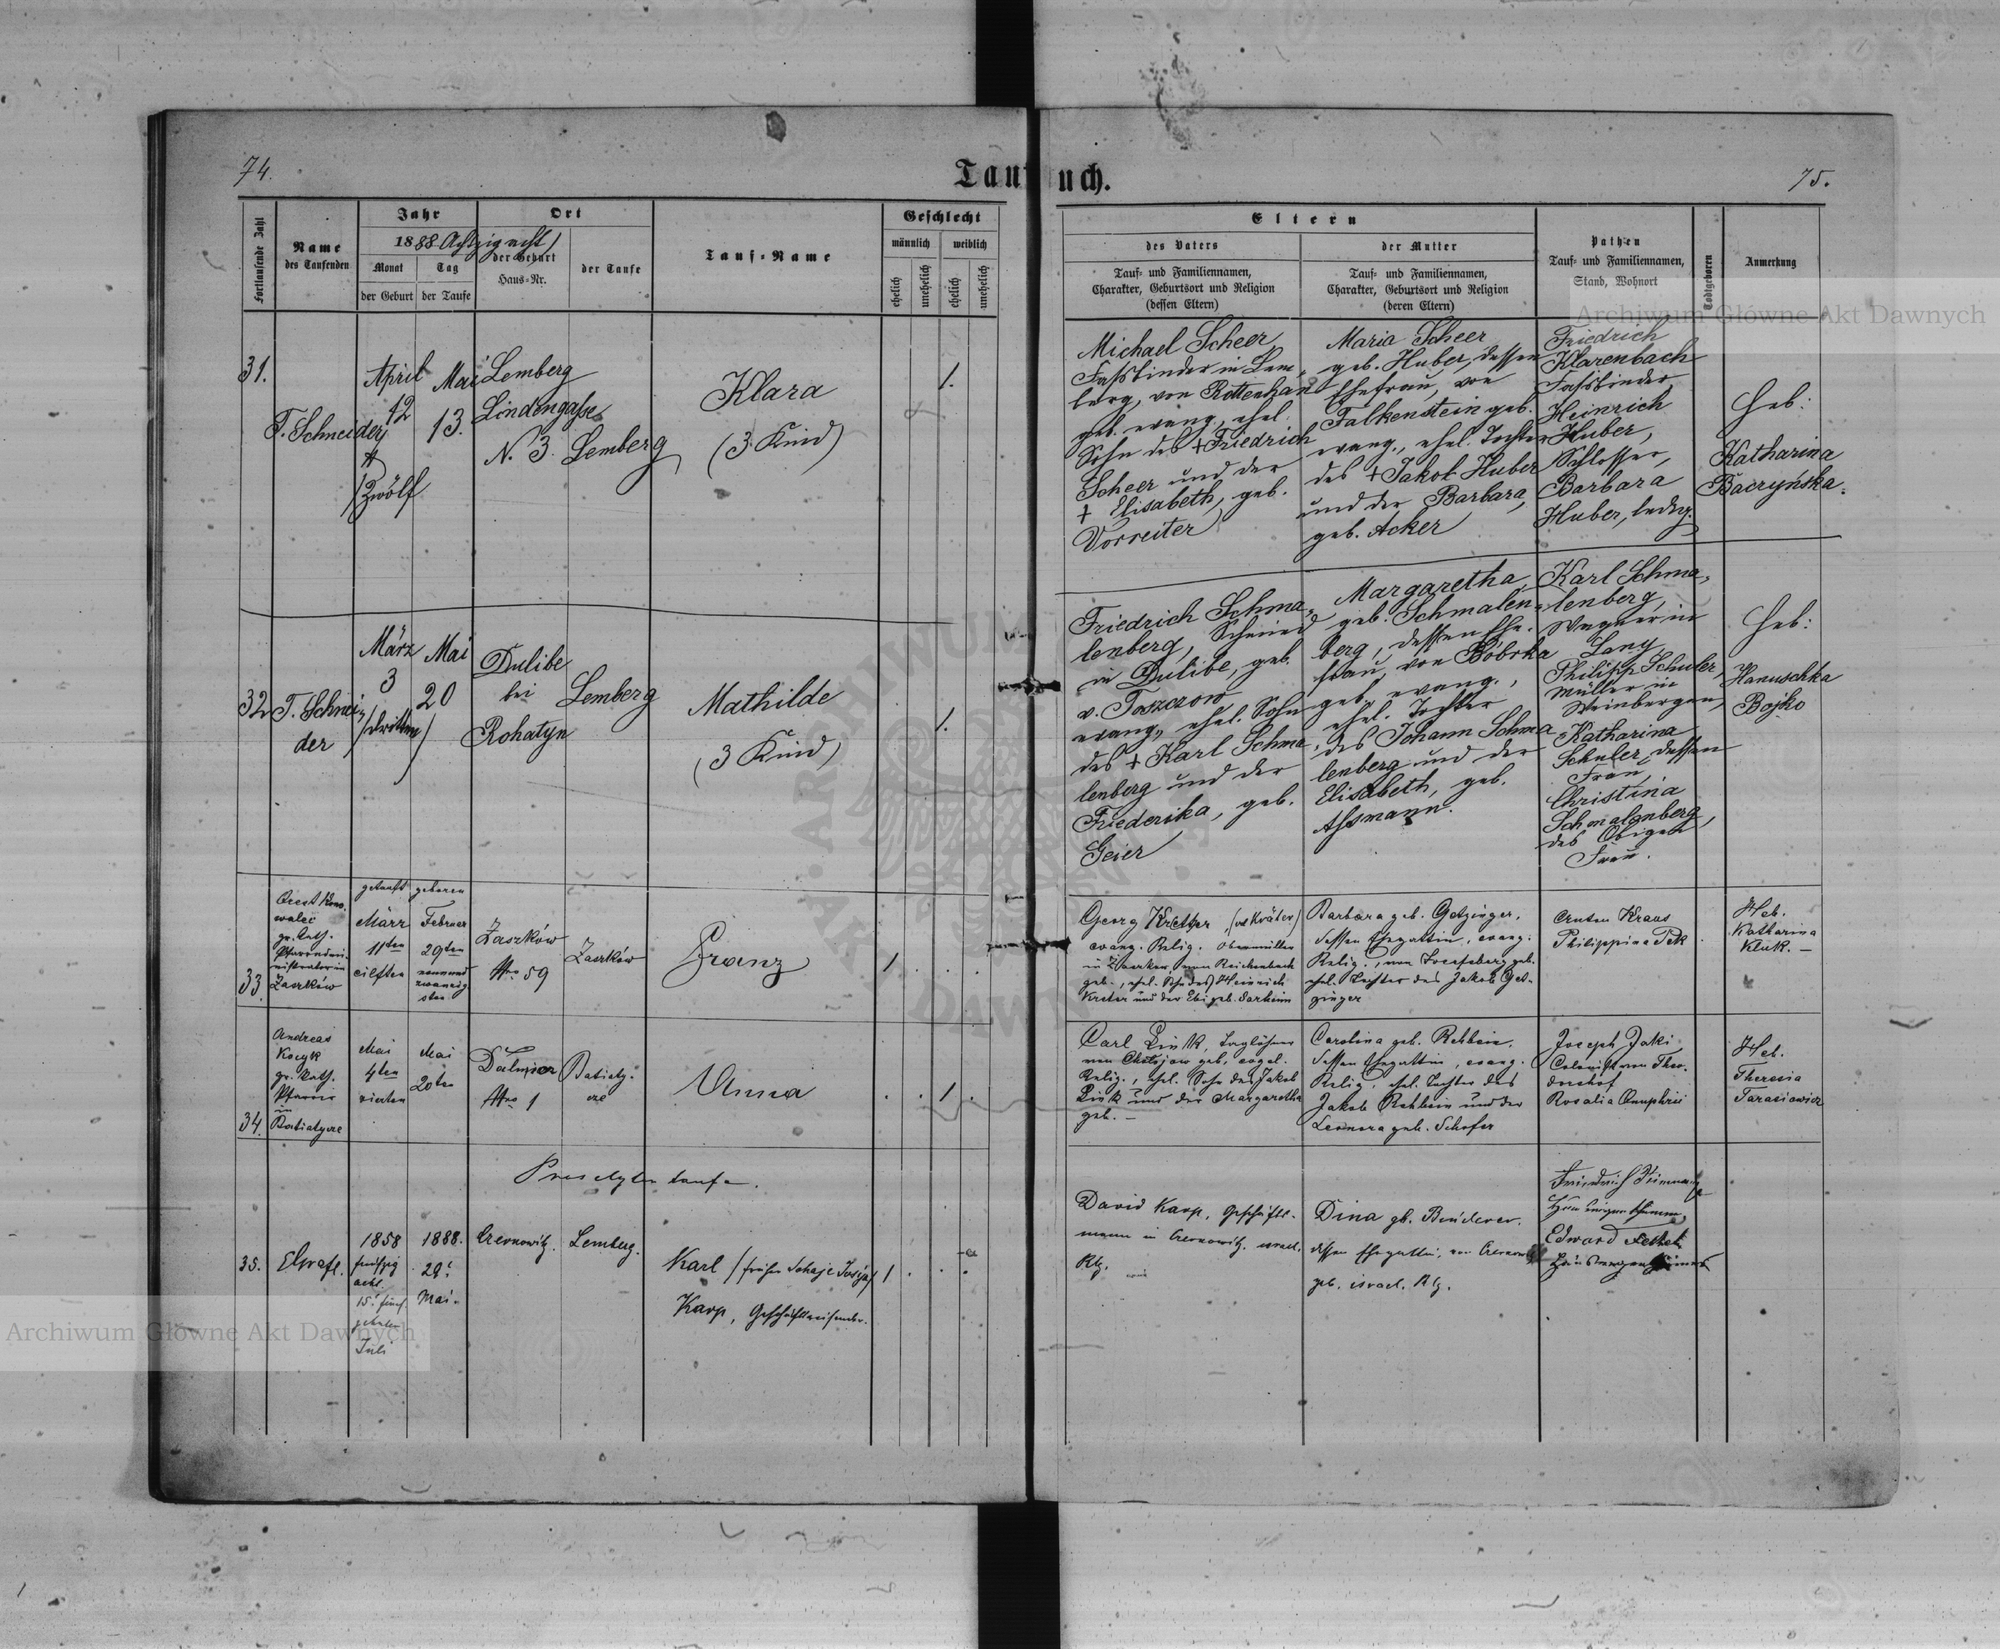 74.
Taufbuch.
75.
Fortlaufende Zahl
Name
des Taufenden
Jahr
1888 Achtzig acht
Monat
der Geburt
Tag
der Taufe
Ort
der Geburt
Haus-Nr.
der Taufe
Tauf-Name
Geschlecht
männlich
weiblich
ehelich
unehelich
ehelich
unehelich
Eltern
des Vaters
Tauf- und Familiennamen,
Charakter, Geburtsort und Religion
(dessen Eltern)
der Mutter
Tauf- und Familiennamen,
Charakter, Geburtsort und Religion
(deren Eltern)
Pathen
Tauf- und Familiennamen,
Stand, Wohnort
Todtgeboren
Anmerkung
31.
T. Schneider
April
12
/Zwölf
Mai
13.
Lemberg
Lindengasse
N. 3.
Lemberg
Klara
(3. Kind)
1.
Michael Scheer
Fassbinder in Lem-
berg, von Rottenhan
geb. evang., ehel.
Sohn des + Friedrich
Scheer und der
+ Elisabeth, geb.
Vorreiter
Maria Scheer
geb. Huber, dessen
Ehefrau, von
Falkenstein geb.
evang., ehel. Tochter
des + Jakob Huber
und der Barbara,
geb. Acker
Friedrich
Klarenbach
Fassbinder,
Heinrich
Huber,
Schlosser,
Barbara
Huber, ledig.
Heb:
Katharina
Baczyńska.
32
T. Schnei-
der
März
3
/dritten/
Mai
20
Dulibe
bei
Rohatyn
Lemberg
Mathilde
(3 Kind)
1.
Friedrich Schma-
lenberg, Schmied
in Dulibe, geb.
v. Toszczow
evang., ehel. Sohn
des + Karl Schma-
lenberg und der
Friederika, geb.
Geier
Margaretha,
geb. Schmalen-
berg, dessen Ehe-
frau, von Bóbrka
geb. evang.,
ehel. Tochter
des Johann Schma-
lenberg und der
Elisabeth, geb.
Assmann.
Karl Schma-
lenberg,
Wagner in
Lany,
Philipp Schuler,
Müller in
Weinbergen,
Katharina
Schuler, dessen
Frau,
Christina
Schmalenberg,
des Obigen
Frau.
Heb:
Hanuschka
Bojko
33.
gr. kath.
in
Zaszków
getauft
März
11ten
eilften
geboren
Februar
29ten
neunund
zwanzig
sten
Zaszków
Nro 59
Zaszków
Franz
1
Georg Kretzer
evang. Relig. Obermüller
in Zaszkow, von Reichenbach
geb., ehel. Sohn des Heinrich
Barbara geb. Getzinger,
dessen Ehegattin, evang.
Relig., von Josefsberg geb.
ehel. Tochter des Jakob Get-
zinger
Anton Kraus
Philippina Pek
Heb.
Katharina
Kluk. —
34.
Andreas
Kocyk
gr. kath.
Pfarrer
in
Batiatycze
Mai
4ten
vierten
Mai
20ten
Nro 1
Batiaty-
cze
Anna
1
Carl Link, Taglöhner
Relig., ehel. Sohn des Jakob
Link und der Margaretha
geb. —
Carolina geb. Rehbein,
dessen Ehegattin, evang.
Relig., ehel. Tochter des
Jakob Rehbein und der
Leonora geb. Schofer
Joseph Jaki
Colonist von Theo-
dorshof
Rosalia Onuphrii
Heb.
Theresia
Tarasiowicz
Proselytentaufe.
35.
1858
fünfzig
acht
15. fünf-
zehnten
Juli
1888.
29.
Mai.
Czernowitz.
Lemberg.
Karl / früher Schaje Josija/
Karp, Geschäftsreisender.
1
David Karp, Geschäfts-
mann in Czernowitz, israel.
Rlg.
Dina gb. Binderer.
dessen Ehegattin, von Czernowitz
geb. israel. Rlg.
Friedrich
Edward
Archiwum Główne Akt Dawnych
Archiwum Główne Akt Dawnych